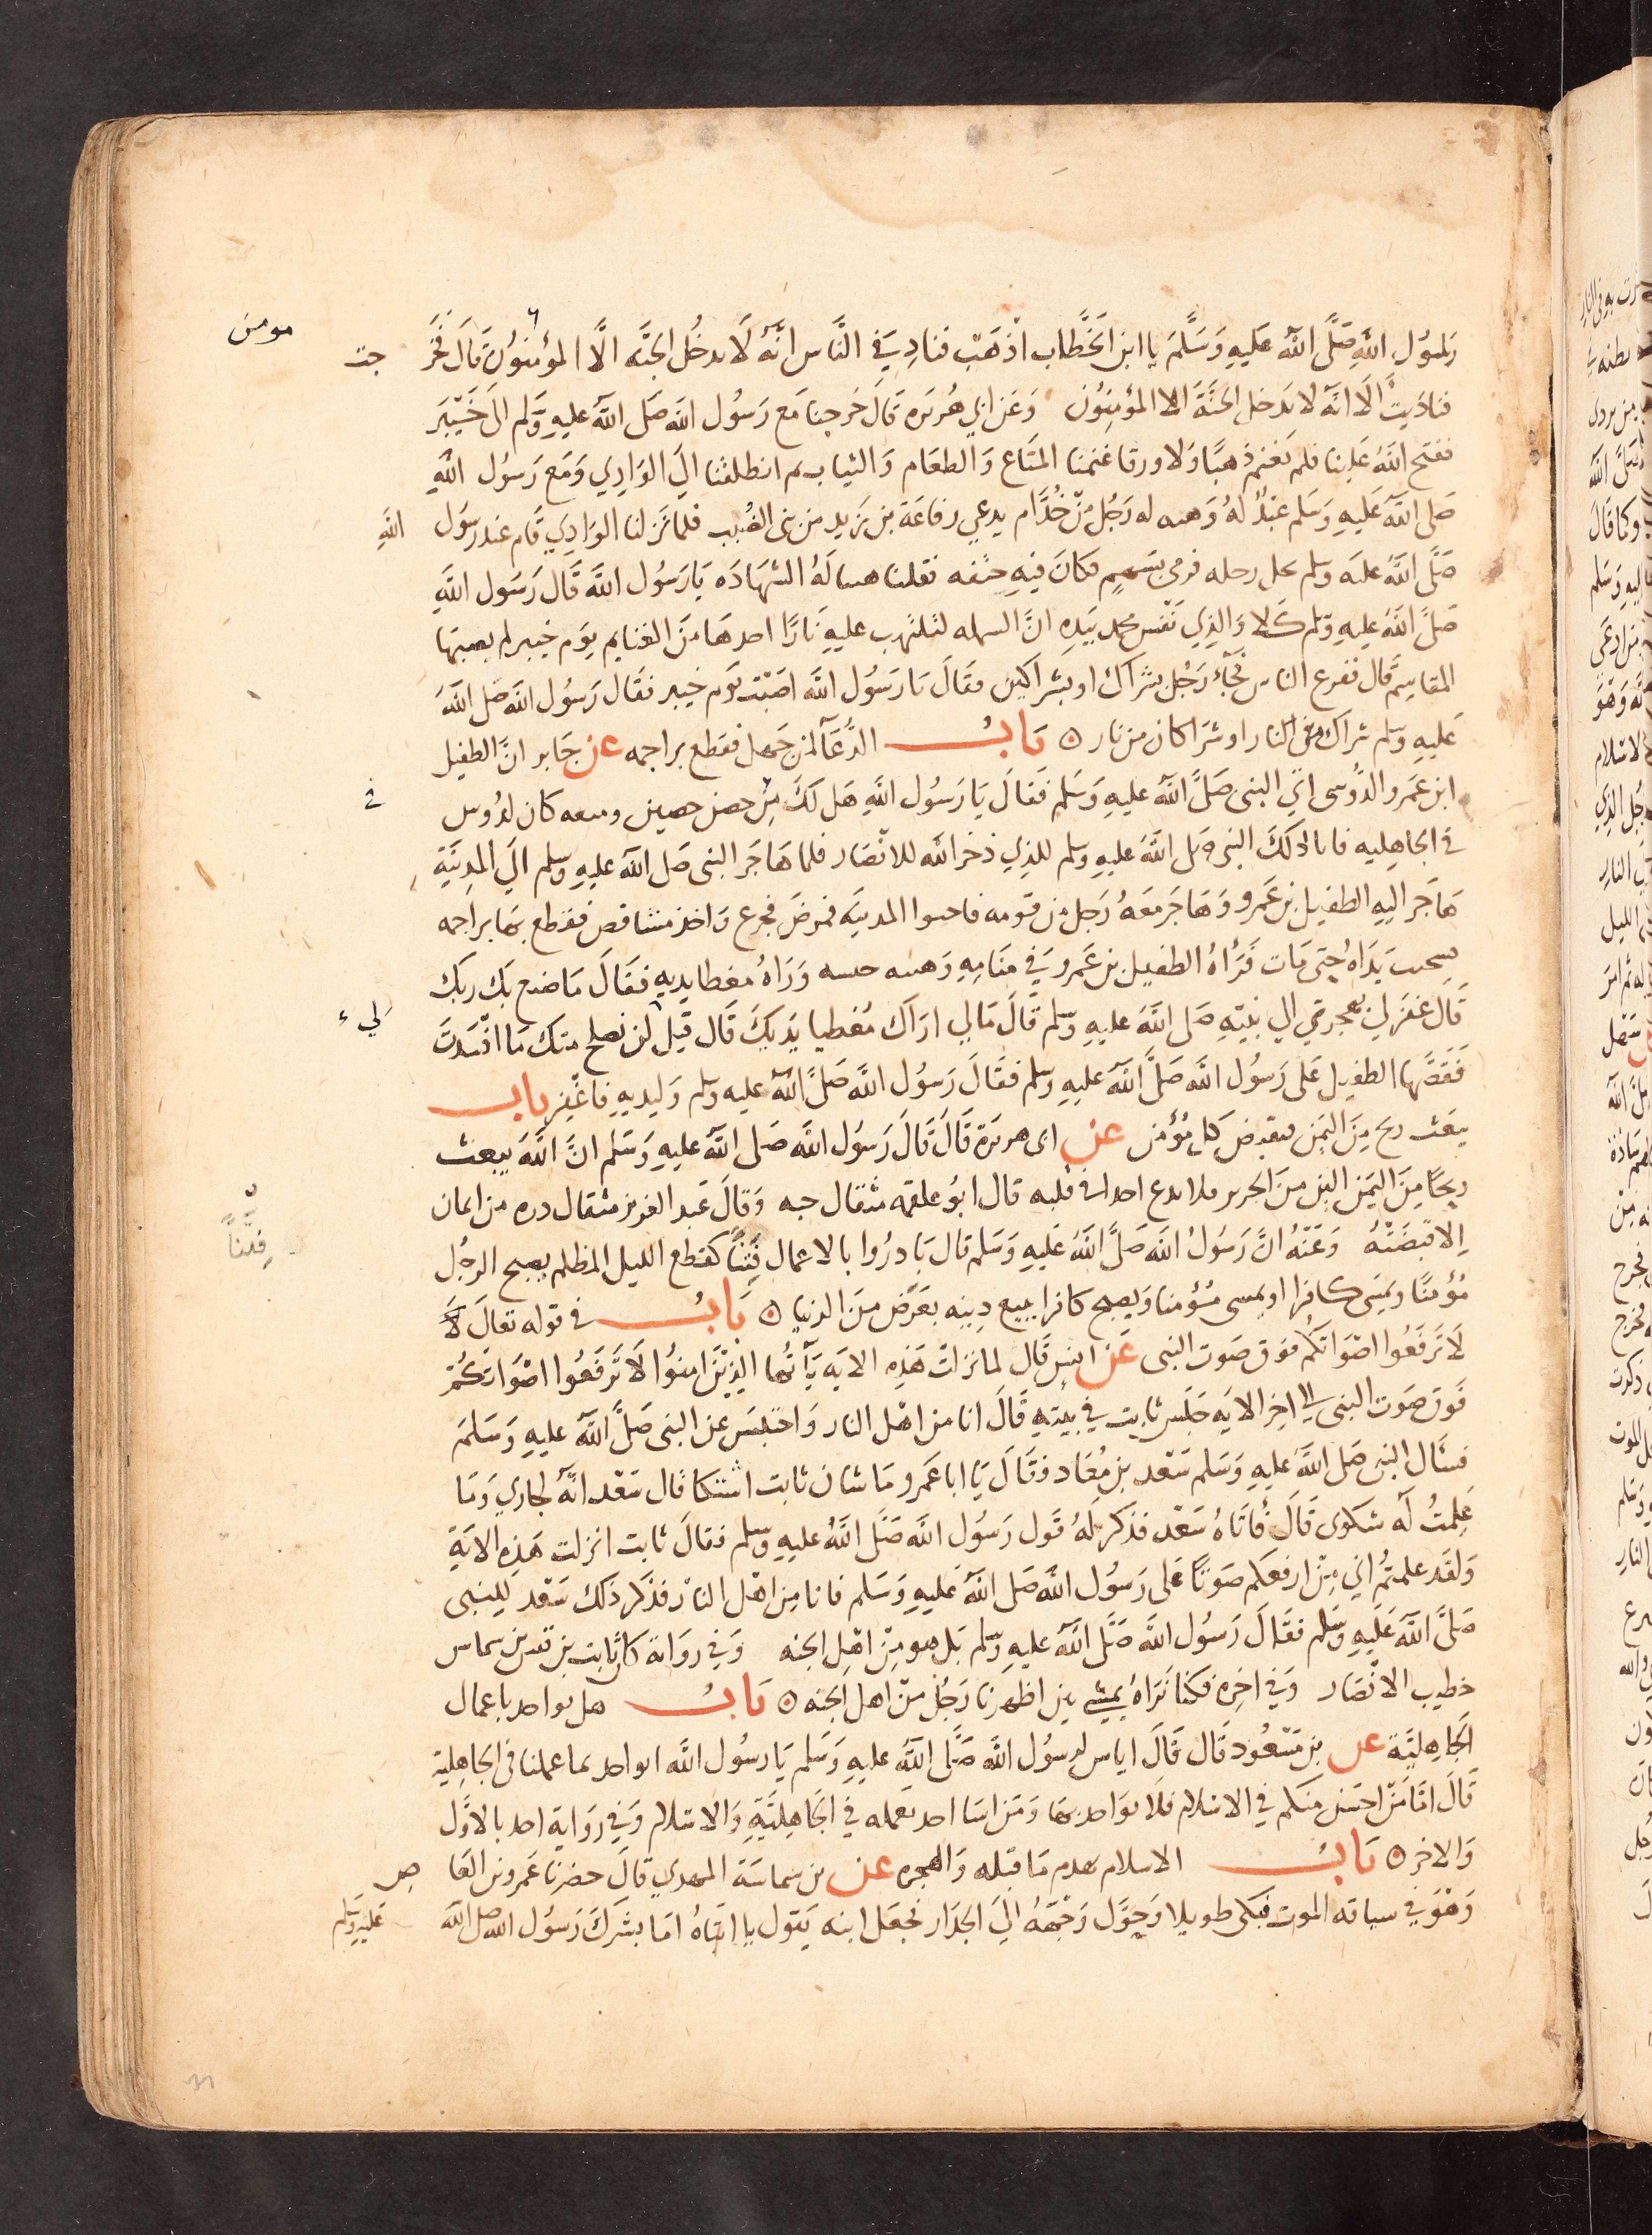 رَسُول اللهِ صَلَّى اللهُ عَلَيهِ وَسَلَّمَ يا ابن الخَطَّاب اذهَب فنادِ في النَّاس انَّهُ لَا يدخُل الجنَّه الَّا المؤمنوُن قَالَ فَخَرَ جت مومن
فنادَيت الَا انَّه لا يَدخل الجنَّةَ الا المؤمِنوُن وَعَن ابي هُريره قَالَ خرجنا مَع رَسُول الله صَلى الله عليهِ وَسَلم الى خَيْبَر
ففتح اللهُ عَلينا فلم نَغنم ذهبًا وَلا ورقا غنمنا المتَاع وَالطعَام وَالثياب ثم انطلقنا الي الوَادِي وَمَع رَسوُل اللهِ
صَلى اللهُ عَلَيهِ وَسَلم عَبدٌ لهُ وَهبه له رَجُل مِن جُذَام يدعي رفاعَة بن زَيد من بني الضُبيب فلما نزلنا الوَادِي قام عَبد رسوُل اللهِ
صَلَّى اللهُ عليَه وسلم يحل رحله فرمي بسَهمٍ فكانَ فيهِ حتفه فقلنا هنيا لَهُ الشهَادَه يَا رَسُول الله قَال رَسَول اللهِ
صَلى اللهُ عليهِ وسلم كَلا وَالذِي نَفس محمد بيَدِهِ انَّ الشمله لتلتهب عليهِ نَارًا اخذهَا مِنَ الغنايم يوَم خيبر لم يصبها
المقاسِم قَال ففزع الناس فجَآءَ رَجُل بشراك او بشراكين فقَالَ يَا رَسُول الله اصَبت يَوم خيبر فقَال رَسُول الله صَلى الله
عَليهِ وَسلم شراك من النار او شرَاكان من نار ۞ بَابُ الدُّعَآ لمن جَهل فقطع براجمه عن جَابر انَّ الطفيل
ابن عَمَرو الدَّوسي اتي النبي صَلَّى اللهُ عليهِ وَسَلم فَقَالَ يَا رَسُول اللهِ هَل لكَ في حصن حصين ومنعه كان لدَوس في
في الجاهِليه فابا ذلكَ النبي صَلى اللهُ عليهِ وسلم للذِي ذخر الله للانْصَار فلما هَاجَر النبي صَلى اللهُ عليهِ وسلم الَى المدِينَةِ
هَاجَر اليهِ الطفيل بن عَمَرو وَهَاجَر معَهُ رَجل من قومه فاجتووا المدينَه فمَرضَ فجزع وَاخذ مشاقص فقطع بهَا براجمه
فشخبت يَدَاهُ حَتي مَات فَرَأهُ الطفيل بن عَمرو في منَامِهِ وَهيئته حسنه وَرَاهُ مغطيا يديهِ فقَالَ مَا صنع بك ربك
قَال غفَر لي بهجرتي الي نبيّهِ صَلى اللهُ عليهِ وسلم قَالَ مَالي ارَاك مُغطيا يَديكَ قَال قيل لن نصلح منك مَا افْسَدتَ لي
فَقَصَّها الطفيل عَلى رَسُول اللهِ صَلَّى اللهُ عليهِ وسلم فقَالَ رَسُول اللهِ صَلَّى اللهُ عليه وسلم وَليديهِ فَاغْفِر بَاب
يبَعَث ريح مِنَ اليَمن فيقبض كل مُؤمن عن ابي هريرَة قَالَ قَالَ رَسوُل اللهِ صَلى اللهُ عليهِ وَسَلم انَّ الله يبعث
ريحًا مِنَ اليَمَن الين مِنَ الحرير فلا تدع احدا في قلبه قال ابوُ علقمه مثقال حبه وَقالَ عَبد العزيز مثقال ذره من ايمان
اِلا قبَضَتْهُ وَعَنْهُ انَّ رَسُولُ الله صَلَّى اللهُ عَليهِ وَسَلم قال بَادرُوا بالاعمال فِتَنًا كقطع الليل المظلم يصبح الرجُل فِتَنًا
مُؤمنًا ويمسَي كافرا او يمسي مُؤمنا وَيصبح كافرا يبيع دِينه بعَرَض مِنَ الدنيا ۞ بَابُ في قوله تعالَى لَا
لَا تَرفَعُوا اصْوَاتكُم فوَق صَوت النبي عَن انس قَال لما نزلت هَذِهِ الايَه يَآيُّها الذِيْنَ امنوُا لَا تَرفَعُوا اصْوَاتكُمْ
فَوق صَوت النبي الي اخِر الايَه جَلَس ثابت في بَيتِهِ قَالَ انا من اهْل النار وَاحتبَس عن النبي صَلَّى اللهُ عليهِ وَسَلمَ
فسَأل النبي صَلى اللهُ عليهِ وَسَلم سَعد بن مُعَاد فقَالَ يَا ابا عَمرو مَا شان ثابت اشتكا قال سَعْد انَّهُ لجاري وَمَا
عَلمتُ لَهُ شكوى قَالَ فأتَاهُ سَعد فذَكَر لهُ قَول رَسُول اللهِ صَلَّى اللهُ عليهِ وسلم فقالَ ثابت انزلت هَذِهِ الايَةِ
وَلقَد علمتمُ اني مِنْ ارفعكم صَوتًا عَلى رَسُول اللهِ صَلى اللهُ عليهِ وَسَلم فانا مِن اهْل النار فذَكَر ذَلك سَعْد للنبي
صَلَّى اللهُ عَليهِ وسَلم فقَالَ رَسُول اللهِ صَلَّى اللهُ عليهِ وسَلم بَل هوَ مِنْ اهلِ الجنه وَفي روَاية كان ثابت بن قيس بن شماس
خطيب الانْصَار وَفي اخِره فكنا نَرَاهُ يمشي بين اظهرنا رَجُل مِن اهل الجَنه ۞ بَابُ هل يواخذ باعمال
الجَاهِليَّة عن بن مَسْعُود قَال قَالَ اناس لرسُول اللهِ صَلَّى اللهُ عليهِ وَسَلم يَا رسُول اللهِ انواخذ بما عملنا في الجاهِلية
قَالَ امَا مَنْ احْسَن منكم في الاسْلام فَلا يوَاخذ بهَا وَمَن اسَا اخذ بعمله في الجَاهِليَّةِ وَالاسْلام وَفي رَوَاية اخذ بالاوَّل
وَالاخر ۞ بَابُ الاسلام يهدم مَا قبله وَالهجره عن بن شماسَة المهدي قالَ حضرنا عَمرو بن العَا ص
وَهْوَ في سياقه الموت فبَكى طويلا وَحَوَّل وَجْهَهُ الَي الجدَار فجَعَل ابنه يَقول يا ابتَاهُ امَا بشركَ رَسُول الله صلى الله عَليهِ وسَلم